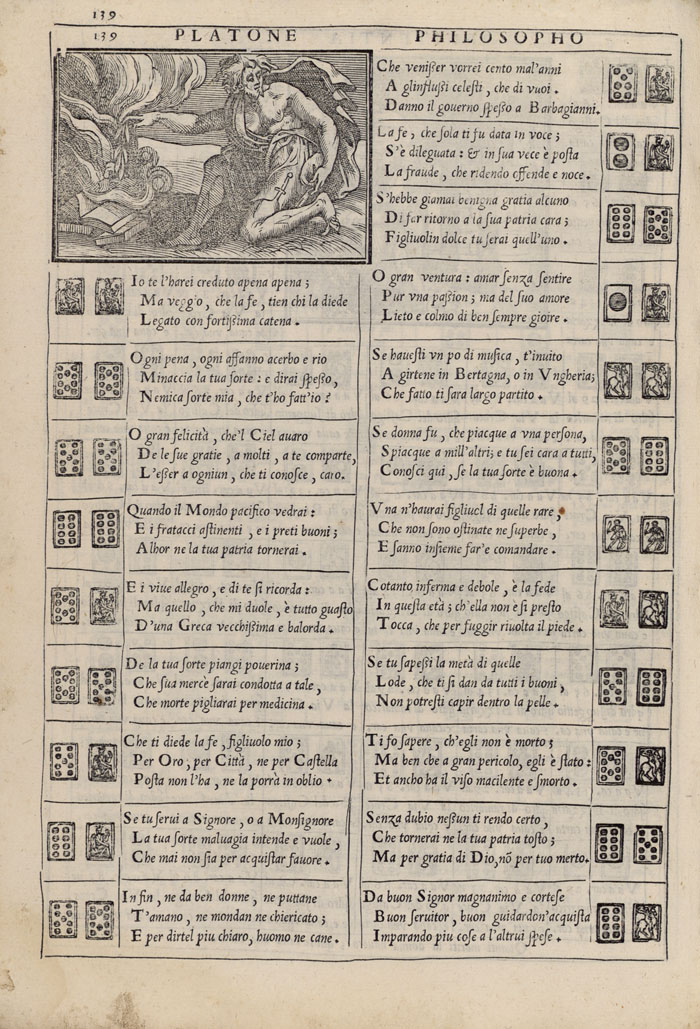 139
139 PLATONE PHILOSOPHO
Che venißer vorrei cento mal'anni
A glinflußi celesti, che di vuoi.
Danno il gouerno speßo a Barbagianni.
La fe, che sola ti fu data in voce;
S'è dileguata: & in sua vece è posta
La fraude, che ridendo offende e noce.
S'hebbe giamai benigna gratia alcuno
Di far ritorno a la sua patria cara;
Figliuolin dolce tu serai quell'uno.
Io te l'harei creduto apena apena;
Ma veggio, che la fe, tien chi la diede
Legato con fortißima catena.
Ogni pena, ogni affanno acerbo e rio
Minaccia la tua sorte: e dirai speßo,
Nemica sorte mia, che t'ho fatt'io?
O gran felicità, che'l Ciel auaro
De le sue gratie, a molti, a te comparte,
L'eßer a ogniun, che ti conosce, caro.
Quando il Mondo pacifico vedrai:
E i fratacci astinenti, e i preti buoni;
Alhor ne la tua patria tornerai.
E i viue allegro, e di te si ricorda:
Ma quello, che mi duole, è tutto guasto
D'una Greca vecchißima e balorda.
De la tua sorte piangi pouerina;
Che sua mercè sarai condotta a tale,
Che morte pigliarai per medicina.
Che ti diede la fe, figliuolo mio;
Per Oro, per Città, ne per Castella
Posta non l'ha, ne la porrà in oblio.
Se tu serui a Signore, o a Monsignore
La tua sorte maluagia intende e vuole,
Che mai non sia per acquistar fauore.
In fin, ne da ben donne, ne puttane
T'amano, ne mondan ne chiericato;
E per dirtel piu chiaro, huomo ne cane.
O gran ventura: amar senza sentire
Pur vna paßion; ma del suo amore
Lieto e colmo di ben sempre gioire.
Se hauesti vn po di musica, t'inuito
A girtene in Bertagna, o in Vngheria;
Che fatto ti sara largo partito.
Se donna fu, che piacque a vna persona,
Spiacque a mill'altri; e tu sei cara a tutti,
Conosci qui, se la tua sorte è buona.
Vna n'haurai figliuol di quelle rare,
Che non sono ostinate ne superbe,
E sanno insieme far'e comandare.
Cotanto inferma e debole, è la fede
In questa età; ch'ella non è si presto
Tocca, che per fuggir riuolta il piede.
Se tu sapeßi la metà di quelle
Lode, che ti si dan da tutti i buoni,
Non potresti capir dentro la pelle.
Ti fo sapere, ch'egli non è morto;
Ma ben che a gran pericolo, egli è stato:
Et ancho ha il viso macilente e smorto.
Senza dubio neßun ti rendo certo,
Che tornerai ne la tua patria tosto;
Ma per gratia di Dio, nõ per tuo merto.
Da buon Signor magnanimo e cortese
Buon seruitor, buon guidardon'acquista
Imparando piu cose a l'altrui spese.